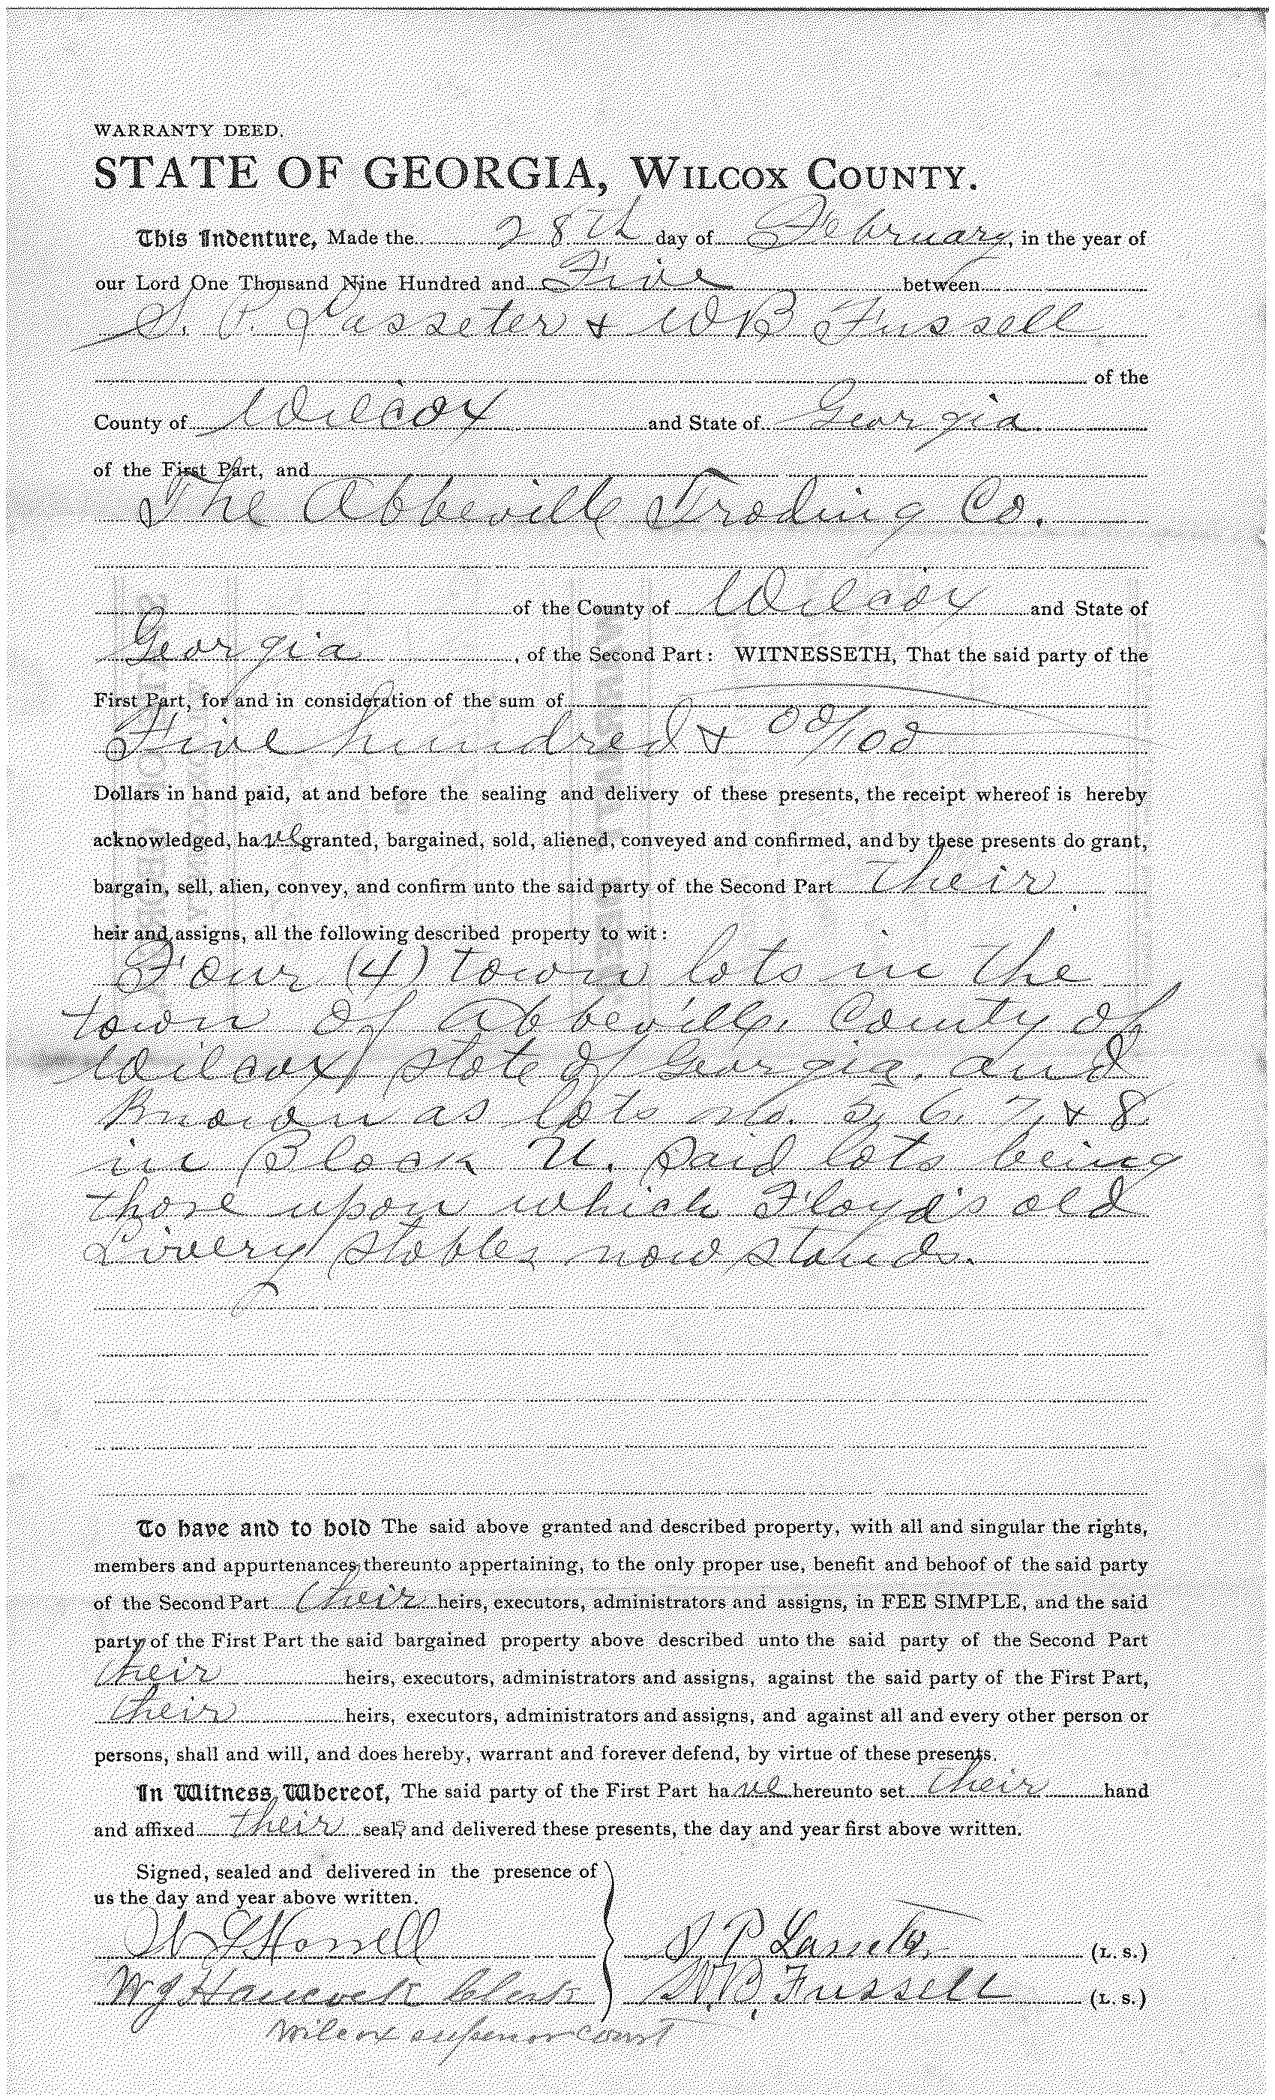 WARRANTY DEED.
STATE OF GEORGIA, WILCOX COUNTY.
This Indenture, Made the 28th day of February, in the year of
our Lord One Thousand Nine Hundred and Five between
S. P. Lasseter & W B Fussell
of the
County of Wilcox and State of Georgia
of the First Part, and
The Abbeville Trading Co.
of the County of Wilcox and State of
Georgia, of the Second Part: WITNESSETH, That the said party of the
First Part, for and in consideration of the sum of
Five hundred & 00/100
Dollars in hand paid, at and before the sealing and delivery of these presents, the receipt whereof is hereby
acknowledged, have granted, bargained, sold, aliened, conveyed and confirmed, and by these presents do grant,
bargain, sell, alien, convey, and confirm unto the said party of the Second Part their
heir and assigns, all the following described property to wit:
Four (4) town lots in the
town of Abbeville, County of
Wilcox, State of Georgia, and
Known as lots no. 5, 6, 7, & 8
in Block U. Said lots being
those upon which Floyd's old
Livery stables now stands.
To have and to hold The said above granted and described property, with all and singular the rights,
members and appurtenances thereunto appertaining, to the only proper use, benefit and behoof of the said party
of the Second Part their heirs, executors, administrators and assigns, in FEE SIMPLE, and the said
party of the First Part the said bargained property above described unto the said party of the Second Part
their heirs, executors, administrators and assigns, against the said party of the First Part,
their heirs, executors, administrators and assigns, and against all and every other person or
persons, shall and will, and does hereby, warrant and forever defend, by virtue of these presents.
In Witness Whereof, The said party of the First Part have hereunto set their hand
and affixed their seals, and delivered these presents, the day and year first above written.
Signed, sealed and delivered in the presence of
us the day and year above written.
S P Lasseter (L. S.)
W J Hancock Clerk W. B. Fussell (L. S.)
Wilcox superior court